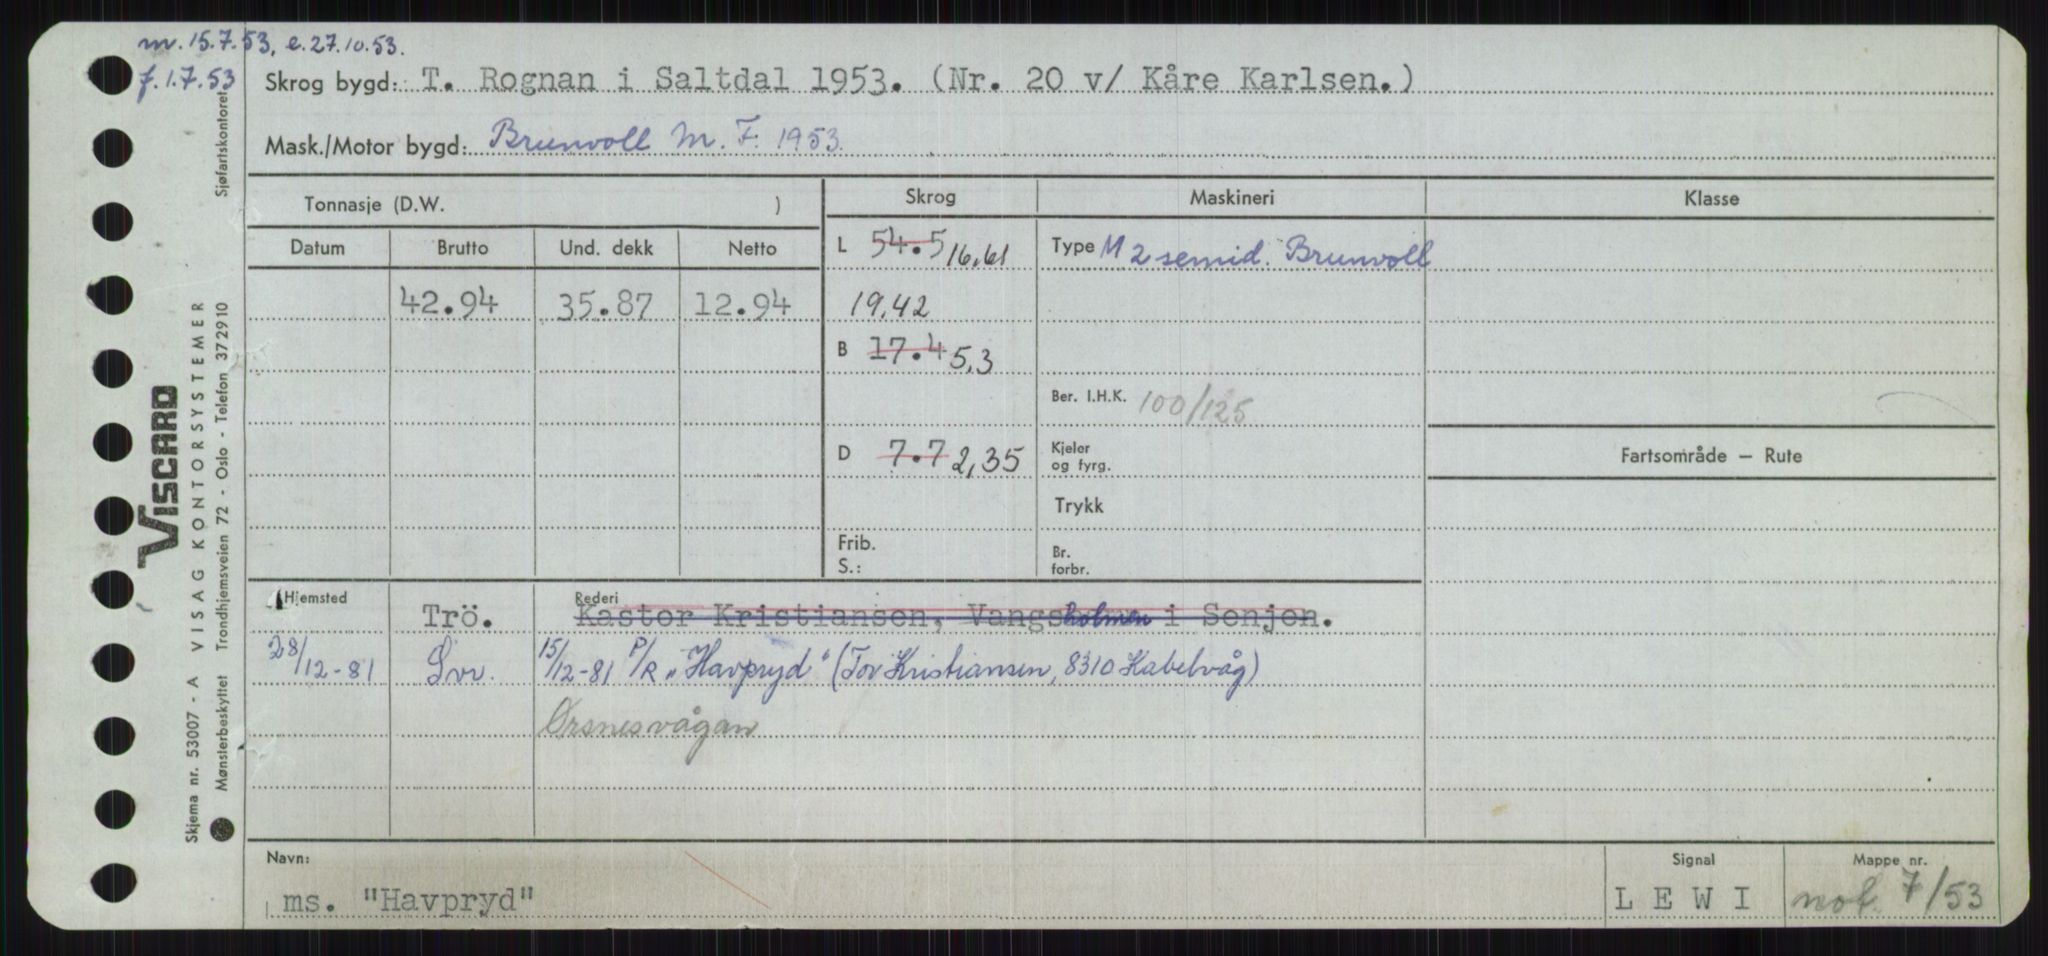 m. 15.7.53, e. 27.10.53.
f. 1.7.53
Skrog bygd: T. Rognan i Saltdal 1953. (Nr. 20 v/ Kåre Karlsen.)
Mask./Motor bygd: Brunvoll M. F. 1953.
Tonnasje (D.W. )
Skrog Maskineri Klasse
Datum Brutto Und. dekk Netto
L 54.5 16,61 Type M 2 semid. Brunvoll
42.94 35.87 12.94 19,42
B 17.4 5,3
Ber. I.H.K. 100/125
D 7.7 2,35 Kjeler og fyrg.
Fartsområde — Rute
Trykk
Frib.
S.:
Br. forbr.
Hjemsted Rederi
Trö. Kastor Kristiansen, Vangsholmen i Senjen.
28/12-81 Svv. 15/12-81 P/R „Havpryd“ (Tor Kristiansen, 8310 Kabelvåg)
Ørsnesvågan
Navn: Signal Mappe nr.
ms. "Havpryd" L E W I not. 7/53
Skjema nr. 53007 - A VISAG KONTORSYSTEMER
VISCARD
Mønsterbeskyttet Trondhjemsveien 72 - Oslo - Telefon 372910 Sjøfartskontoret